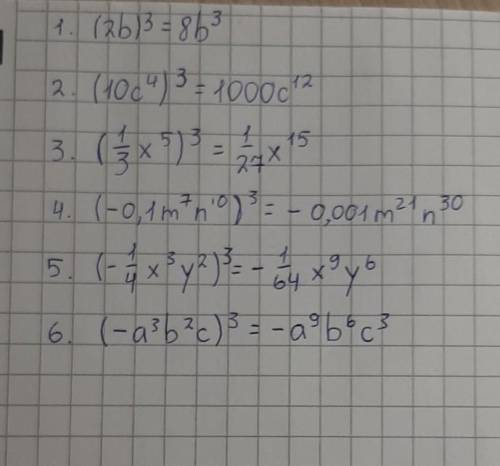 1. (2b)³ = 8b³
2. (10c⁴)³ = 1000c¹²
3. (1/3 x⁵)³ = 1/27 x¹⁵
4. (-0,1m⁷n¹⁰)³ = -0,001m²¹n³⁰
5. (-1/4 x³y²)³ = -1/64 x⁹y⁶
6. (-a³b²c)³ = -a⁹b⁶c³